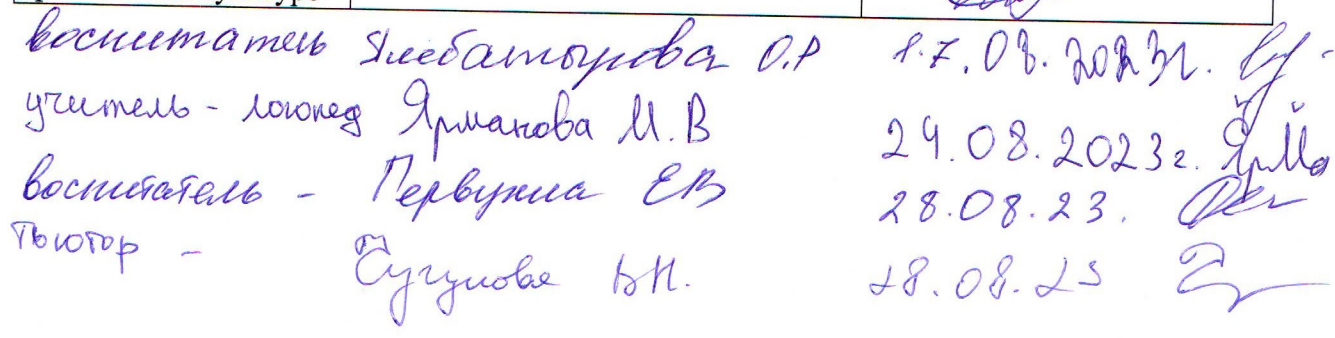 воспитатель Ялебатырова О.Р 17.08.2023г.
учитель - логопед Ярманова М.В 24.08.2023г.
воспитатель - Первухина ЕВ 28.08.23.
Тьютор - Чугунова ВН. 28.08.23